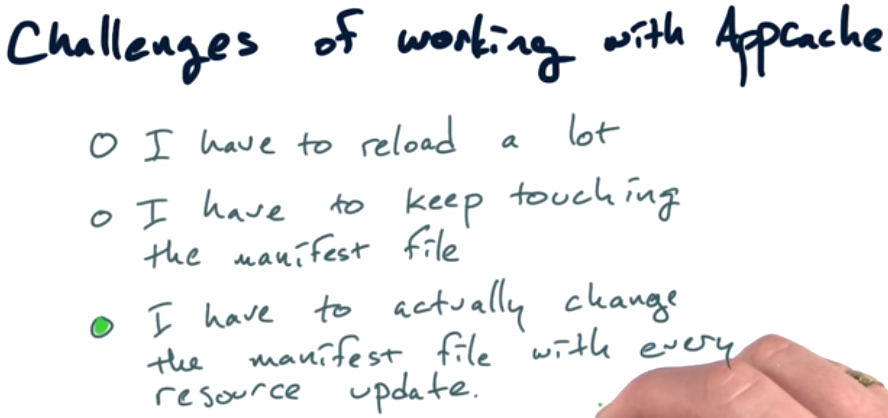 Challenges of working with Appcache
I have to reload a lot
I have to keep touching
the manifest file
I have to actually change
the manifest file with every
resource update.